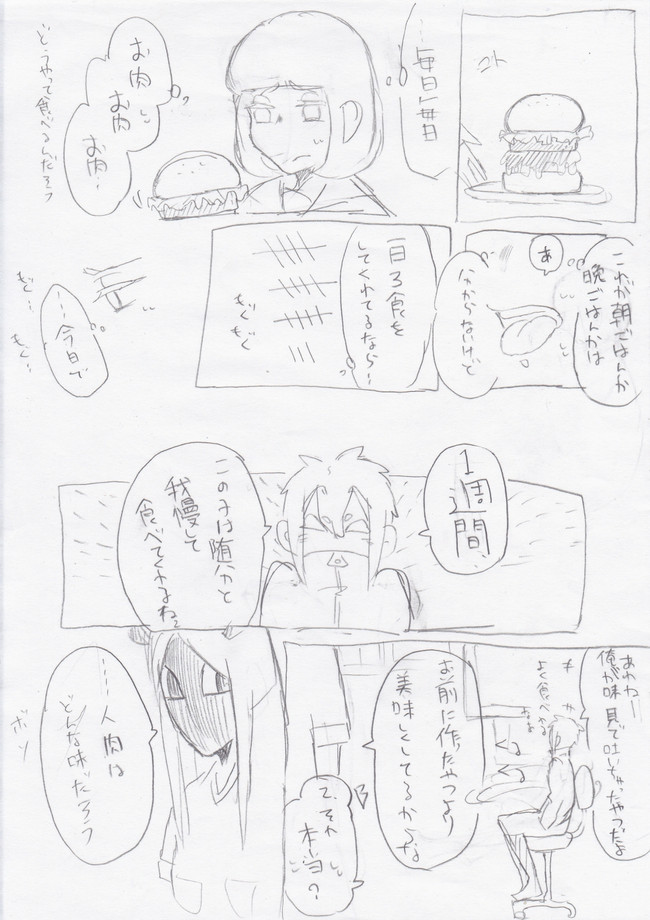 コト
……毎日毎日
お肉
お肉
お肉…
どうやって食べるんだろう
これが朝ごはんか
晩ごはんかは
あ
分からないけど
一日3食を
してくれてるなら…
もぐ
もぐ
……今日で
もぐ…
もぐ…
1週間、
このみは随分と
我慢して
食べてくれるね
あれねー
俺が味見で吐いちゃったやつだよ
よく食べれる
なぁ
お前に作ったやつより
美味しくしてるからな
そ、それ
本当？
……人肉は
どんな味だったろう
ボソ